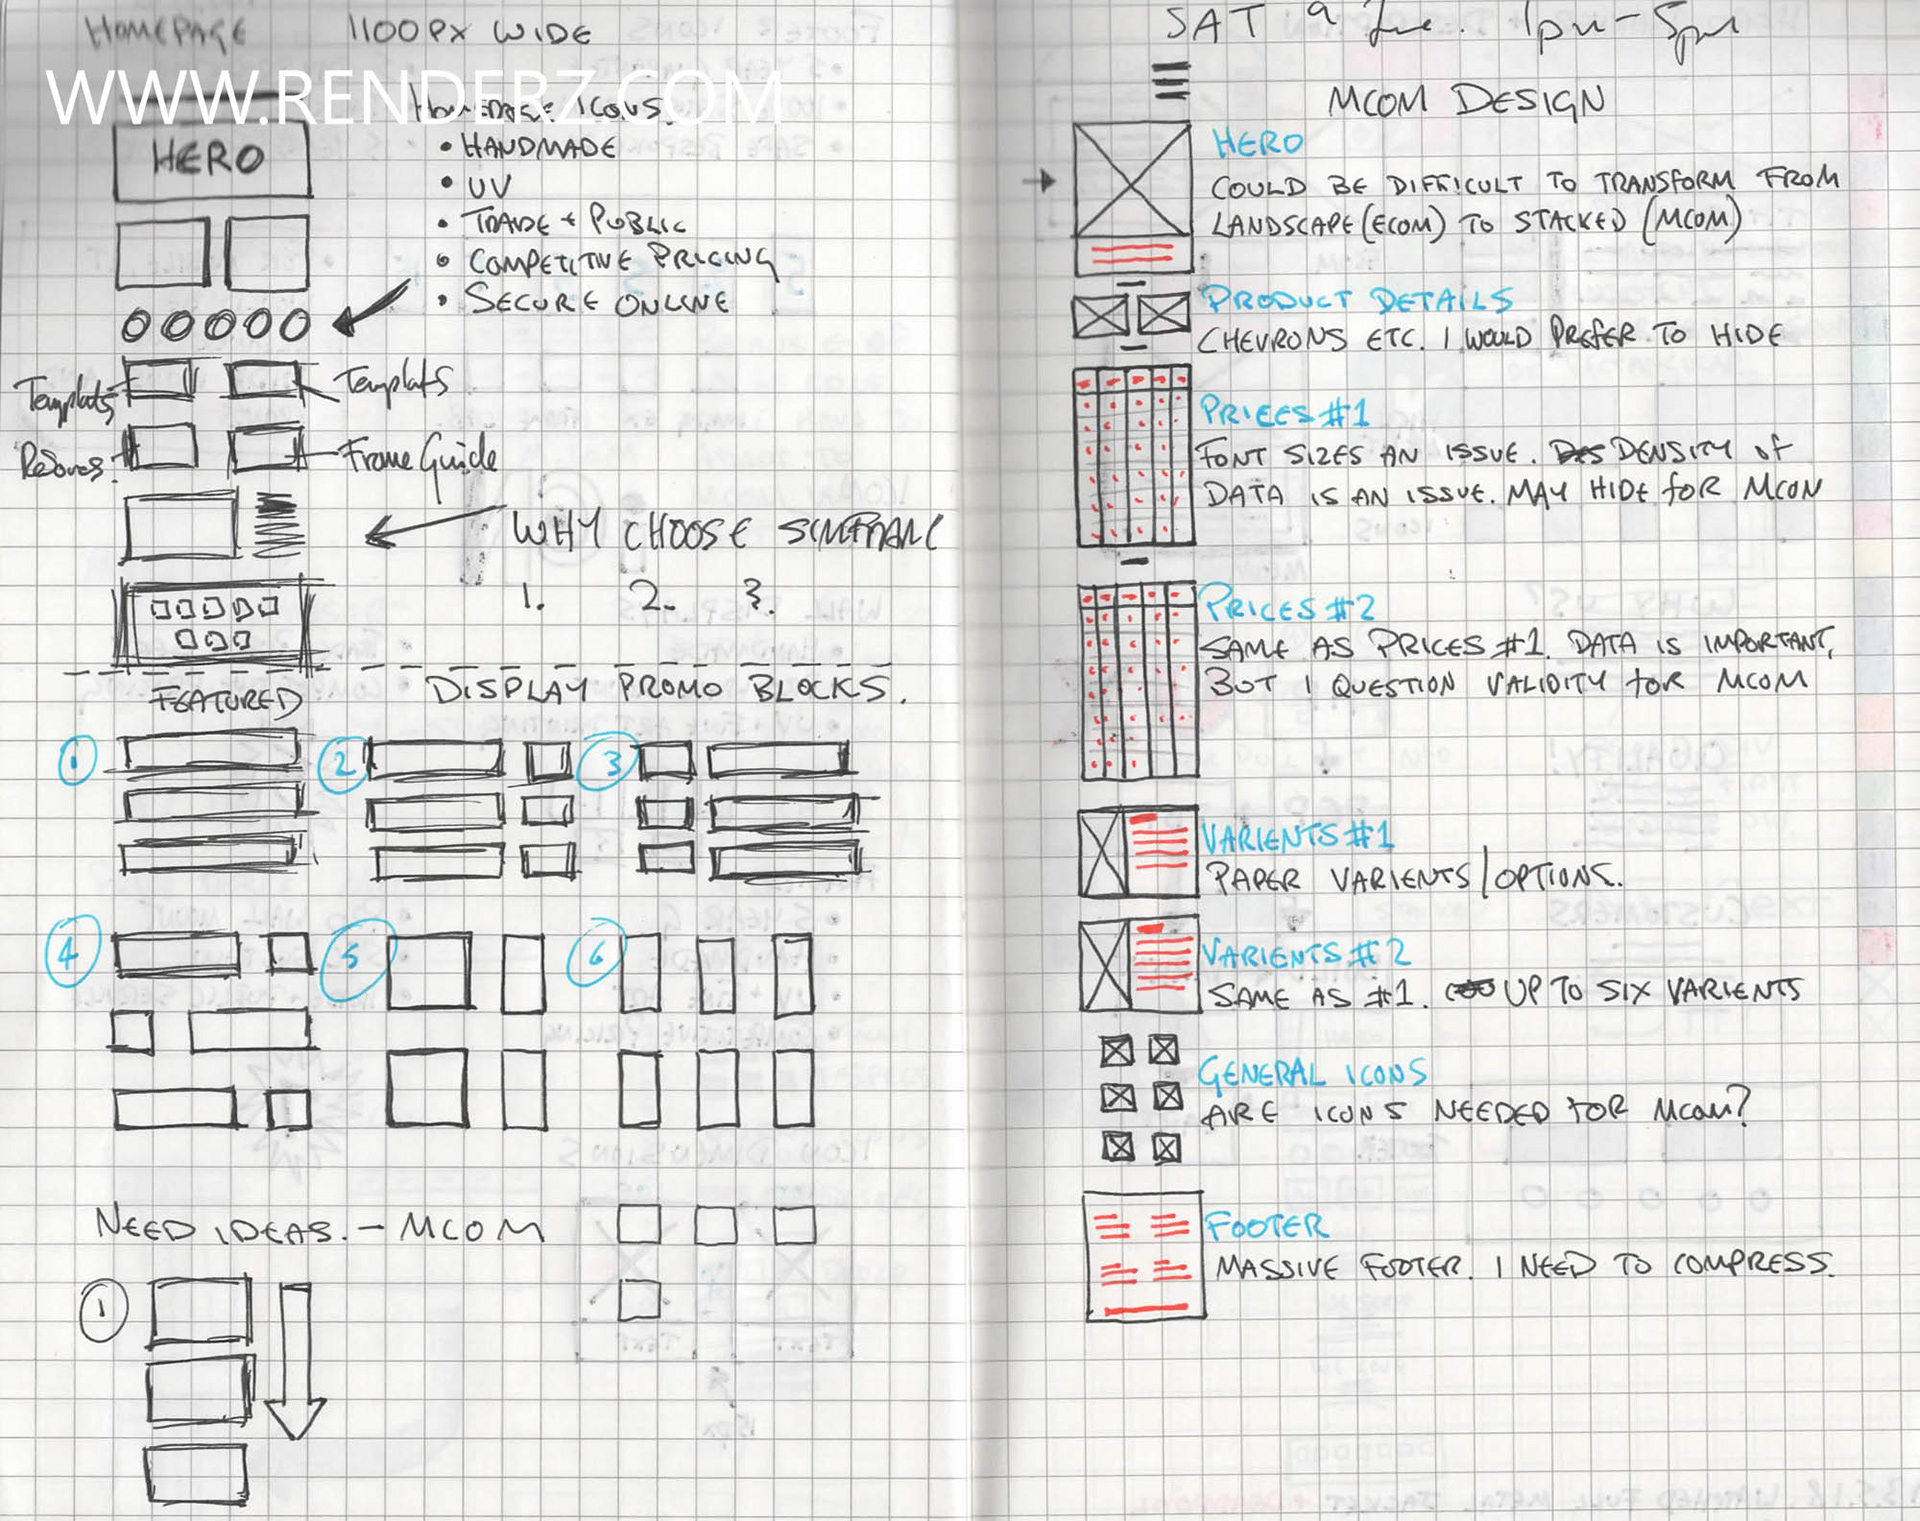 HOMEPAGE 1100PX WIDE
WWW.RENDERZ.COM
HOMEPAGE ICONS.
HERO
• HANDMADE
• UV
• TRADE + PUBLIC
• COMPETITIVE PRICING
• SECURE ONLINE
Templats
Templats
Frame Guide
WHY CHOOSE
1. 2. 3.
FEATURED
DISPLAY PROMO BLOCKS.
1
2
3
4
5
6
NEED IDEAS. – MCOM
1
SAT 9 1pm – 5pm
MCOM DESIGN
HERO
COULD BE DIFFICULT TO TRANSFORM FROM
LANDSCAPE (ECOM) TO STACKED (MCOM)
PRODUCT DETAILS
CHEVRONS ETC. I WOULD PREFER TO HIDE
PRICES #1
FONT SIZES AN ISSUE. DENSITY OF
DATA IS AN ISSUE. MAY HIDE FOR MCOM
PRICES #2
SAME AS PRICES #1. DATA IS IMPORTANT,
BUT I QUESTION VALIDITY FOR MCOM
VARIENTS #1
PAPER VARIENTS/OPTIONS.
VARIENTS #2
SAME AS #1. UP TO SIX VARIENTS
GENERAL ICONS
ARE ICONS NEEDED FOR MCOM?
FOOTER
MASSIVE FOOTER. I NEED TO COMPRESS.